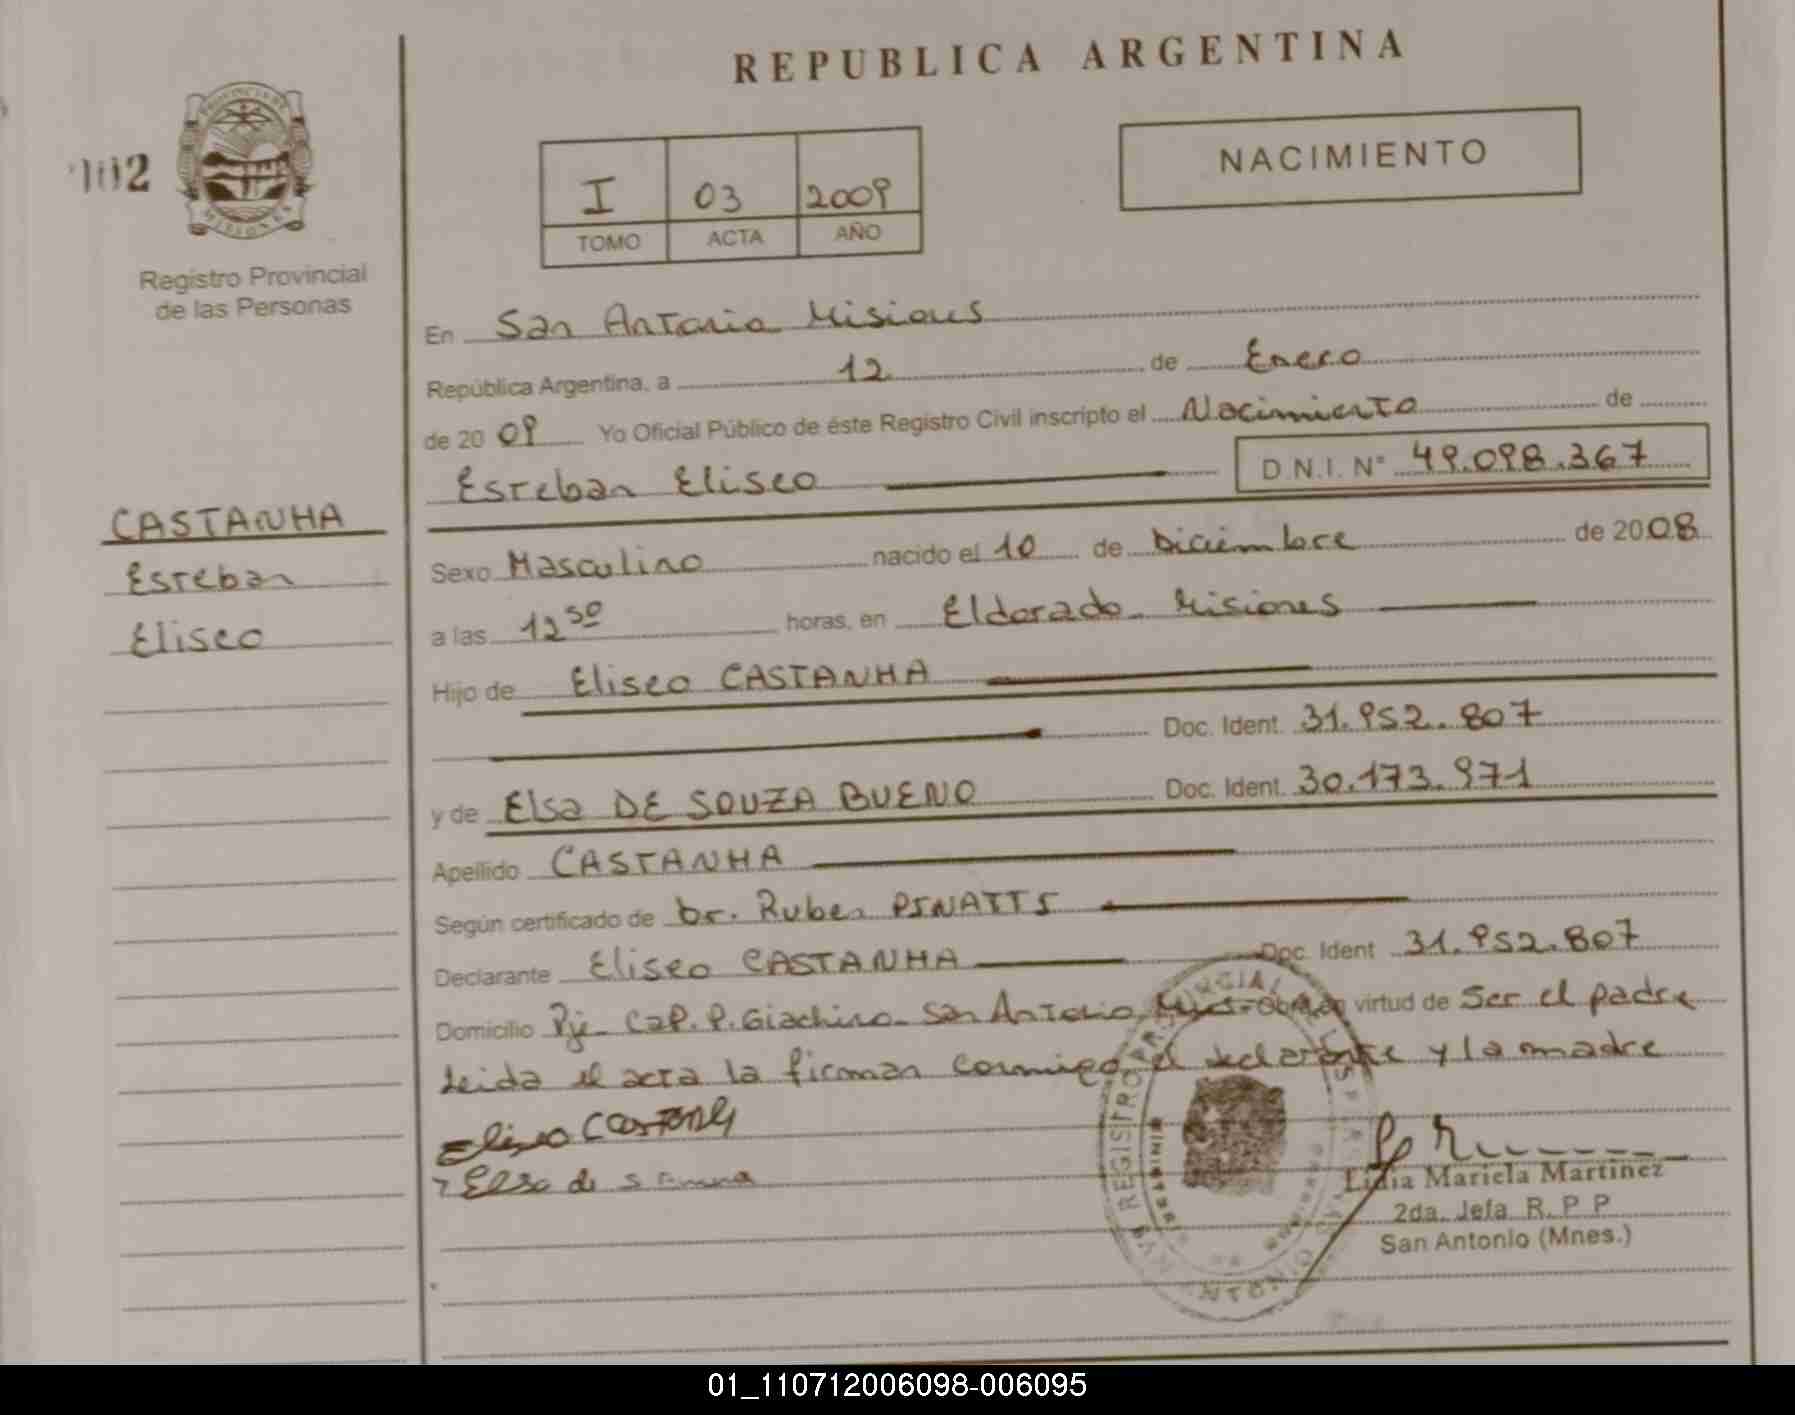 REPUBLICA ARGENTINA
102
PROVINCIA DE MISIONES
Registro Provincial
de las Personas
I 03 2009
TOMO ACTA AÑO
NACIMIENTO
En San Antonio Misiones
República Argentina, a 12 de Enero
de 20 09 Yo Oficial Público de éste Registro Civil inscripto el Nacimiento de
Esteban Eliseo D.N.I. N° 49.098.367
CASTANHA
Esteban
Eliseo
Sexo Masculino nacido el 10 de Diciembre de 2008
a las 12 50 horas, en Eldorado Misiones
Hijo de Eliseo CASTANHA
Doc. Ident. 31.952.807
y de Elsa DE SOUZA BUENO Doc. Ident. 30.173.971
Apellido CASTANHA
Según certificado de Dr. Ruben PINATTI
Declarante Eliseo CASTANHA Doc. Ident 31.952.807
Domicilio Pje Cap. P. Giachino San Antonio virtud de Ser el padre
Leida el acta la firman conmigo el declarante y la madre
Eliseo Castanha
Elsa de S
Lidia Mariela Martinez
2da. Jefa R. P P
San Antonio (Mnes.)
01_110712006098-006095